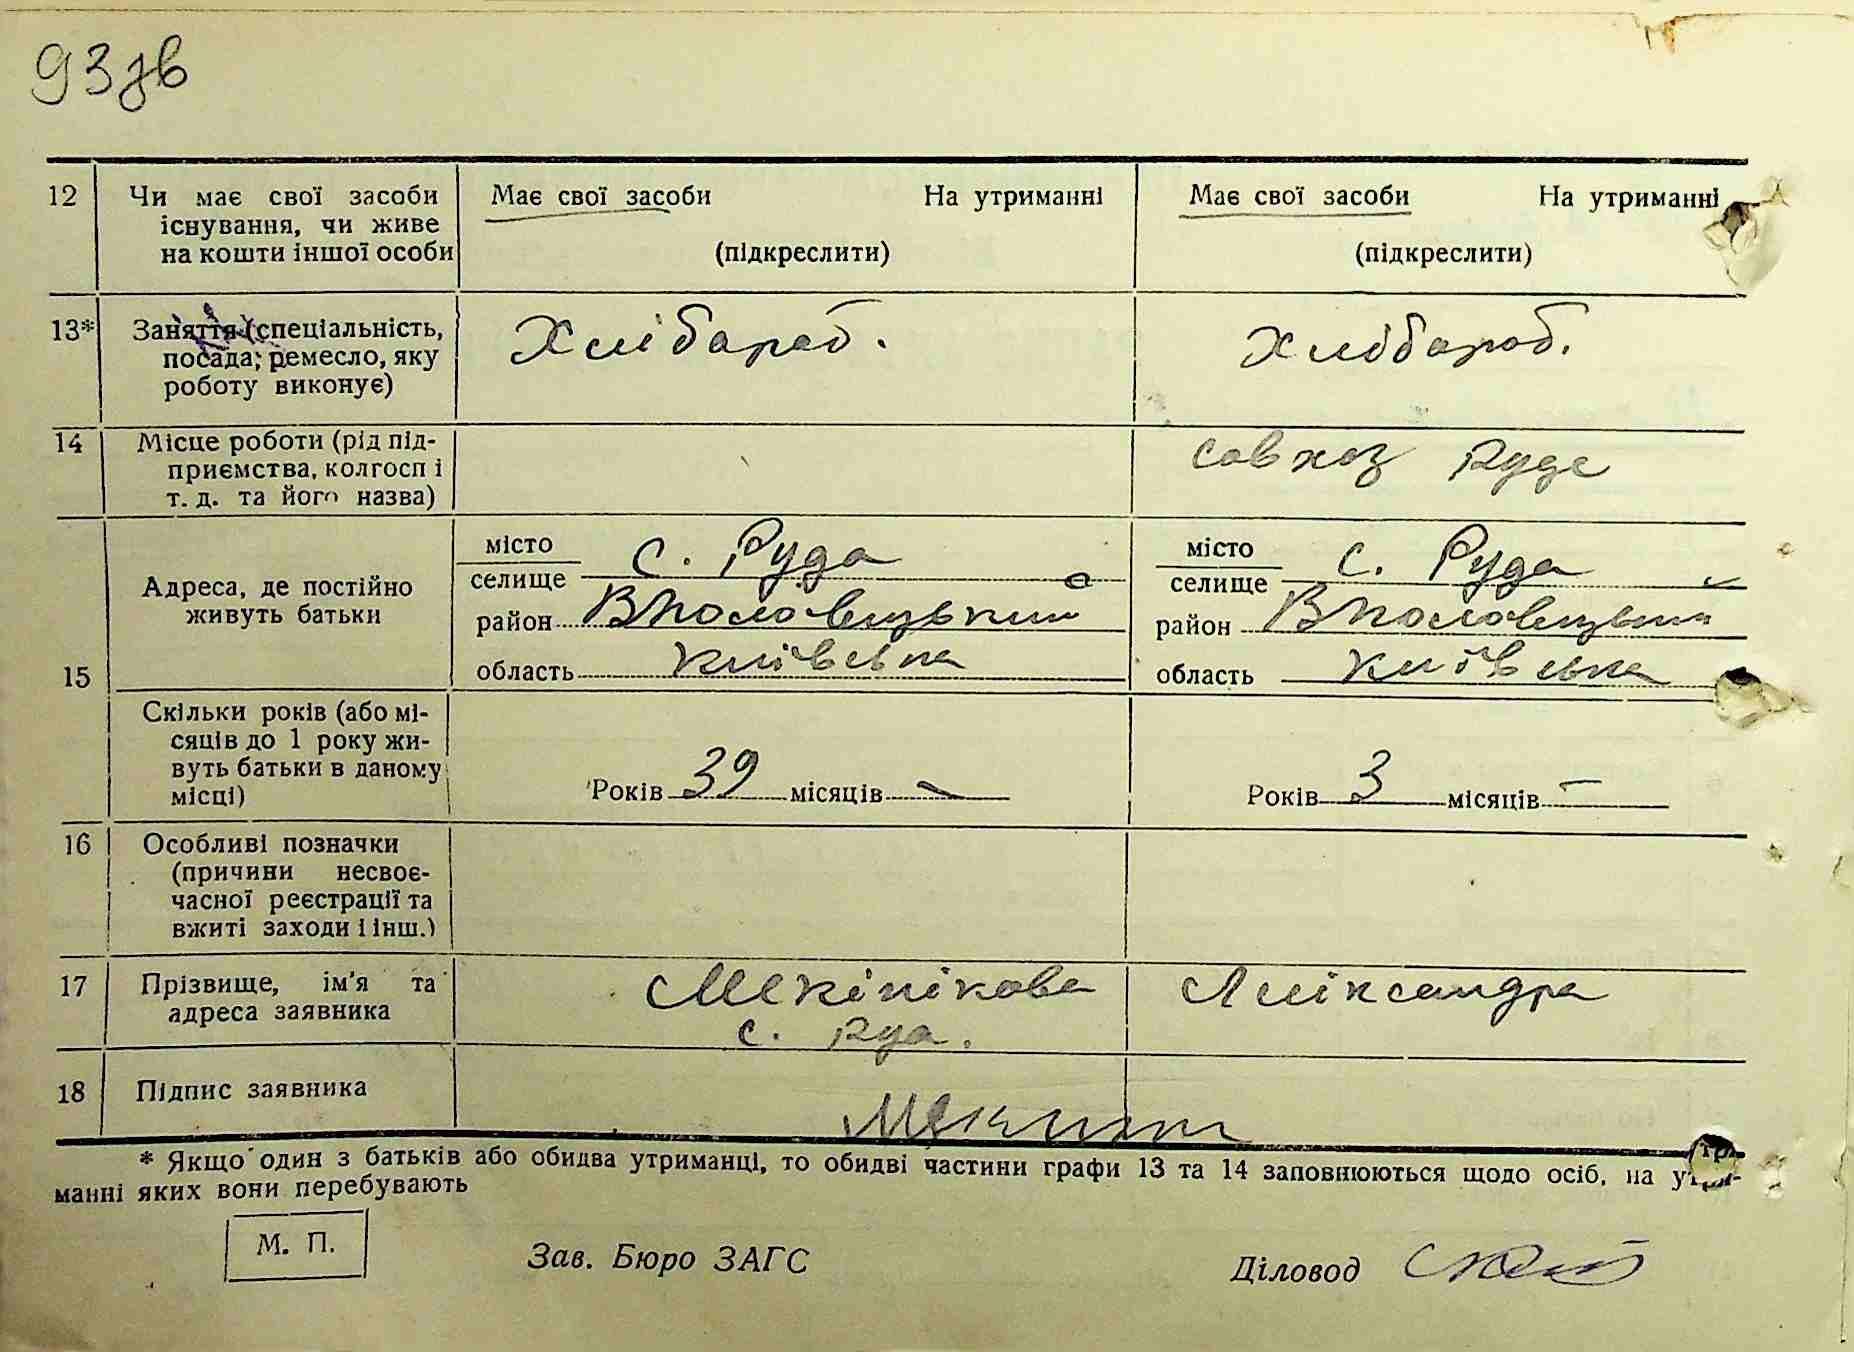 93 зв
12 Чи має свої засоби існування, чи живе на кошти іншої особи
Має свої засоби На утриманні
(підкреслити)
Має свої засоби На утриманні
(підкреслити)
13* Заняття (спеціальність,
посада; ремесло, яку
роботу виконує)
Хлібароб.
Хлібороб.
14 Місце роботи (рід під-
приємства, колгосп і
т. д. та його назва)
совхоз Руде
15
Адреса, де постійно
живуть батьки
місто
селище с. Руда
район Вполовецький
область Київська
місто
селище с. Руда
район Вполовецький
область Київська
Скільки років (або мі-
сяців до 1 року жи-
вуть батьки в даному
місці)
Років 39 місяців –
Років 3 місяців –
16 Особливі позначки
(причини несвоє-
часної реєстрації та
вжиті заходи і інш.)
17 Прізвище, ім'я та
адреса заявника
Мекінікова Аліксандра
с. Руда.
18 Підпис заявника
* Якщо один з батьків або обидва утриманці, то обидві частини графи 13 та 14 заповнюються щодо осіб, на утри-
манні яких вони перебувають
М. П.
Зав. Бюро ЗАГС
Діловод